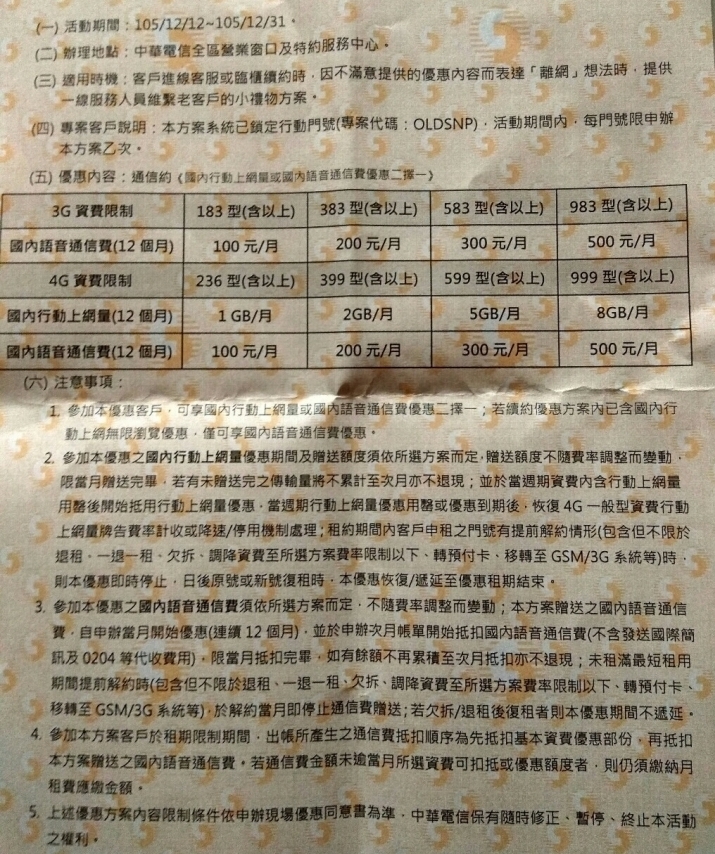 (一) 活動期間：105/12/12~105/12/31。
(二) 辦理地點：中華電信全區營業窗口及特約服務中心。
(三) 適用時機：客戶進線客服或臨櫃續約時，因不滿意提供的優惠內容而表達「離網」想法時，提供
一線服務人員維繫老客戶的小禮物方案。
(四) 專案客戶說明：本方案系統已鎖定行動門號(專案代碼：OLDSNP)，活動期間內，每門號限申辦
本方案乙次。
(五) 優惠內容：通信約《國內行動上網量或國內語音通信費優惠二擇一》
3G 資費限制 183 型(含以上) 383 型(含以上) 583 型(含以上) 983 型(含以上)
國內語音通信費(12 個月) 100 元/月 200 元/月 300 元/月 500 元/月
4G 資費限制 236 型(含以上) 399 型(含以上) 599 型(含以上) 999 型(含以上)
國內行動上網量(12 個月) 1 GB/月 2GB/月 5GB/月 8GB/月
國內語音通信費(12 個月) 100 元/月 200 元/月 300 元/月 500 元/月
(六) 注意事項：
1. 參加本優惠客戶，可享國內行動上網量或國內語音通信費優惠二擇一；若續約優惠方案內已含國內行
動上網無限瀏覽優惠，僅可享國內語音通信費優惠。
2. 參加本優惠之國內行動上網量優惠期間及贈送額度須依所選方案而定，贈送額度不隨費率調整而變動，
限當月贈送完畢，若有未贈送完之傳輸量將不累計至次月亦不退現；並於當週期資費內含行動上網量
用罄後開始抵用行動上網量優惠，當週期行動上網量優惠用罄或優惠到期後，恢復 4G 一般型資費行動
上網量牌告費率計收或降速/停用機制處理；租約期間內客戶申租之門號有提前解約情形(包含但不限於
退租、一退一租、欠拆、調降資費至所選方案費率限制以下、轉預付卡、移轉至 GSM/3G 系統等)時，
則本優惠即時停止，日後原號或新號復租時，本優惠恢復/遞延至優惠租期結束。
3. 參加本優惠之國內語音通信費須依所選方案而定，不隨費率調整而變動；本方案贈送之國內語音通信
費，自申辦當月開始優惠(連續 12 個月)，並於申辦次月帳單開始抵扣國內語音通信費(不含發送國際簡
訊及 0204 等代收費用)，限當月抵扣完畢，如有餘額不再累積至次月抵扣亦不退現；未租滿最短租用
期間提前解約時(包含但不限於退租、一退一租、欠拆、調降資費至所選方案費率限制以下、轉預付卡、
移轉至 GSM/3G 系統等)，於解約當月即停止通信費贈送；若欠拆/退租後復租者則本優惠期間不遞延。
4. 參加本方案客戶於租期限制期間，出帳所產生之通信費抵扣順序為先抵扣基本資費優惠部份，再抵扣
本方案贈送之國內語音通信費。若通信費金額未逾當月所選資費可扣抵或優惠額度者，則仍須繳納月
租費應繳金額。
5. 上述優惠方案內容限制條件依申辦現場優惠同意書為準，中華電信保有隨時修正、暫停、終止本活動
之權利。